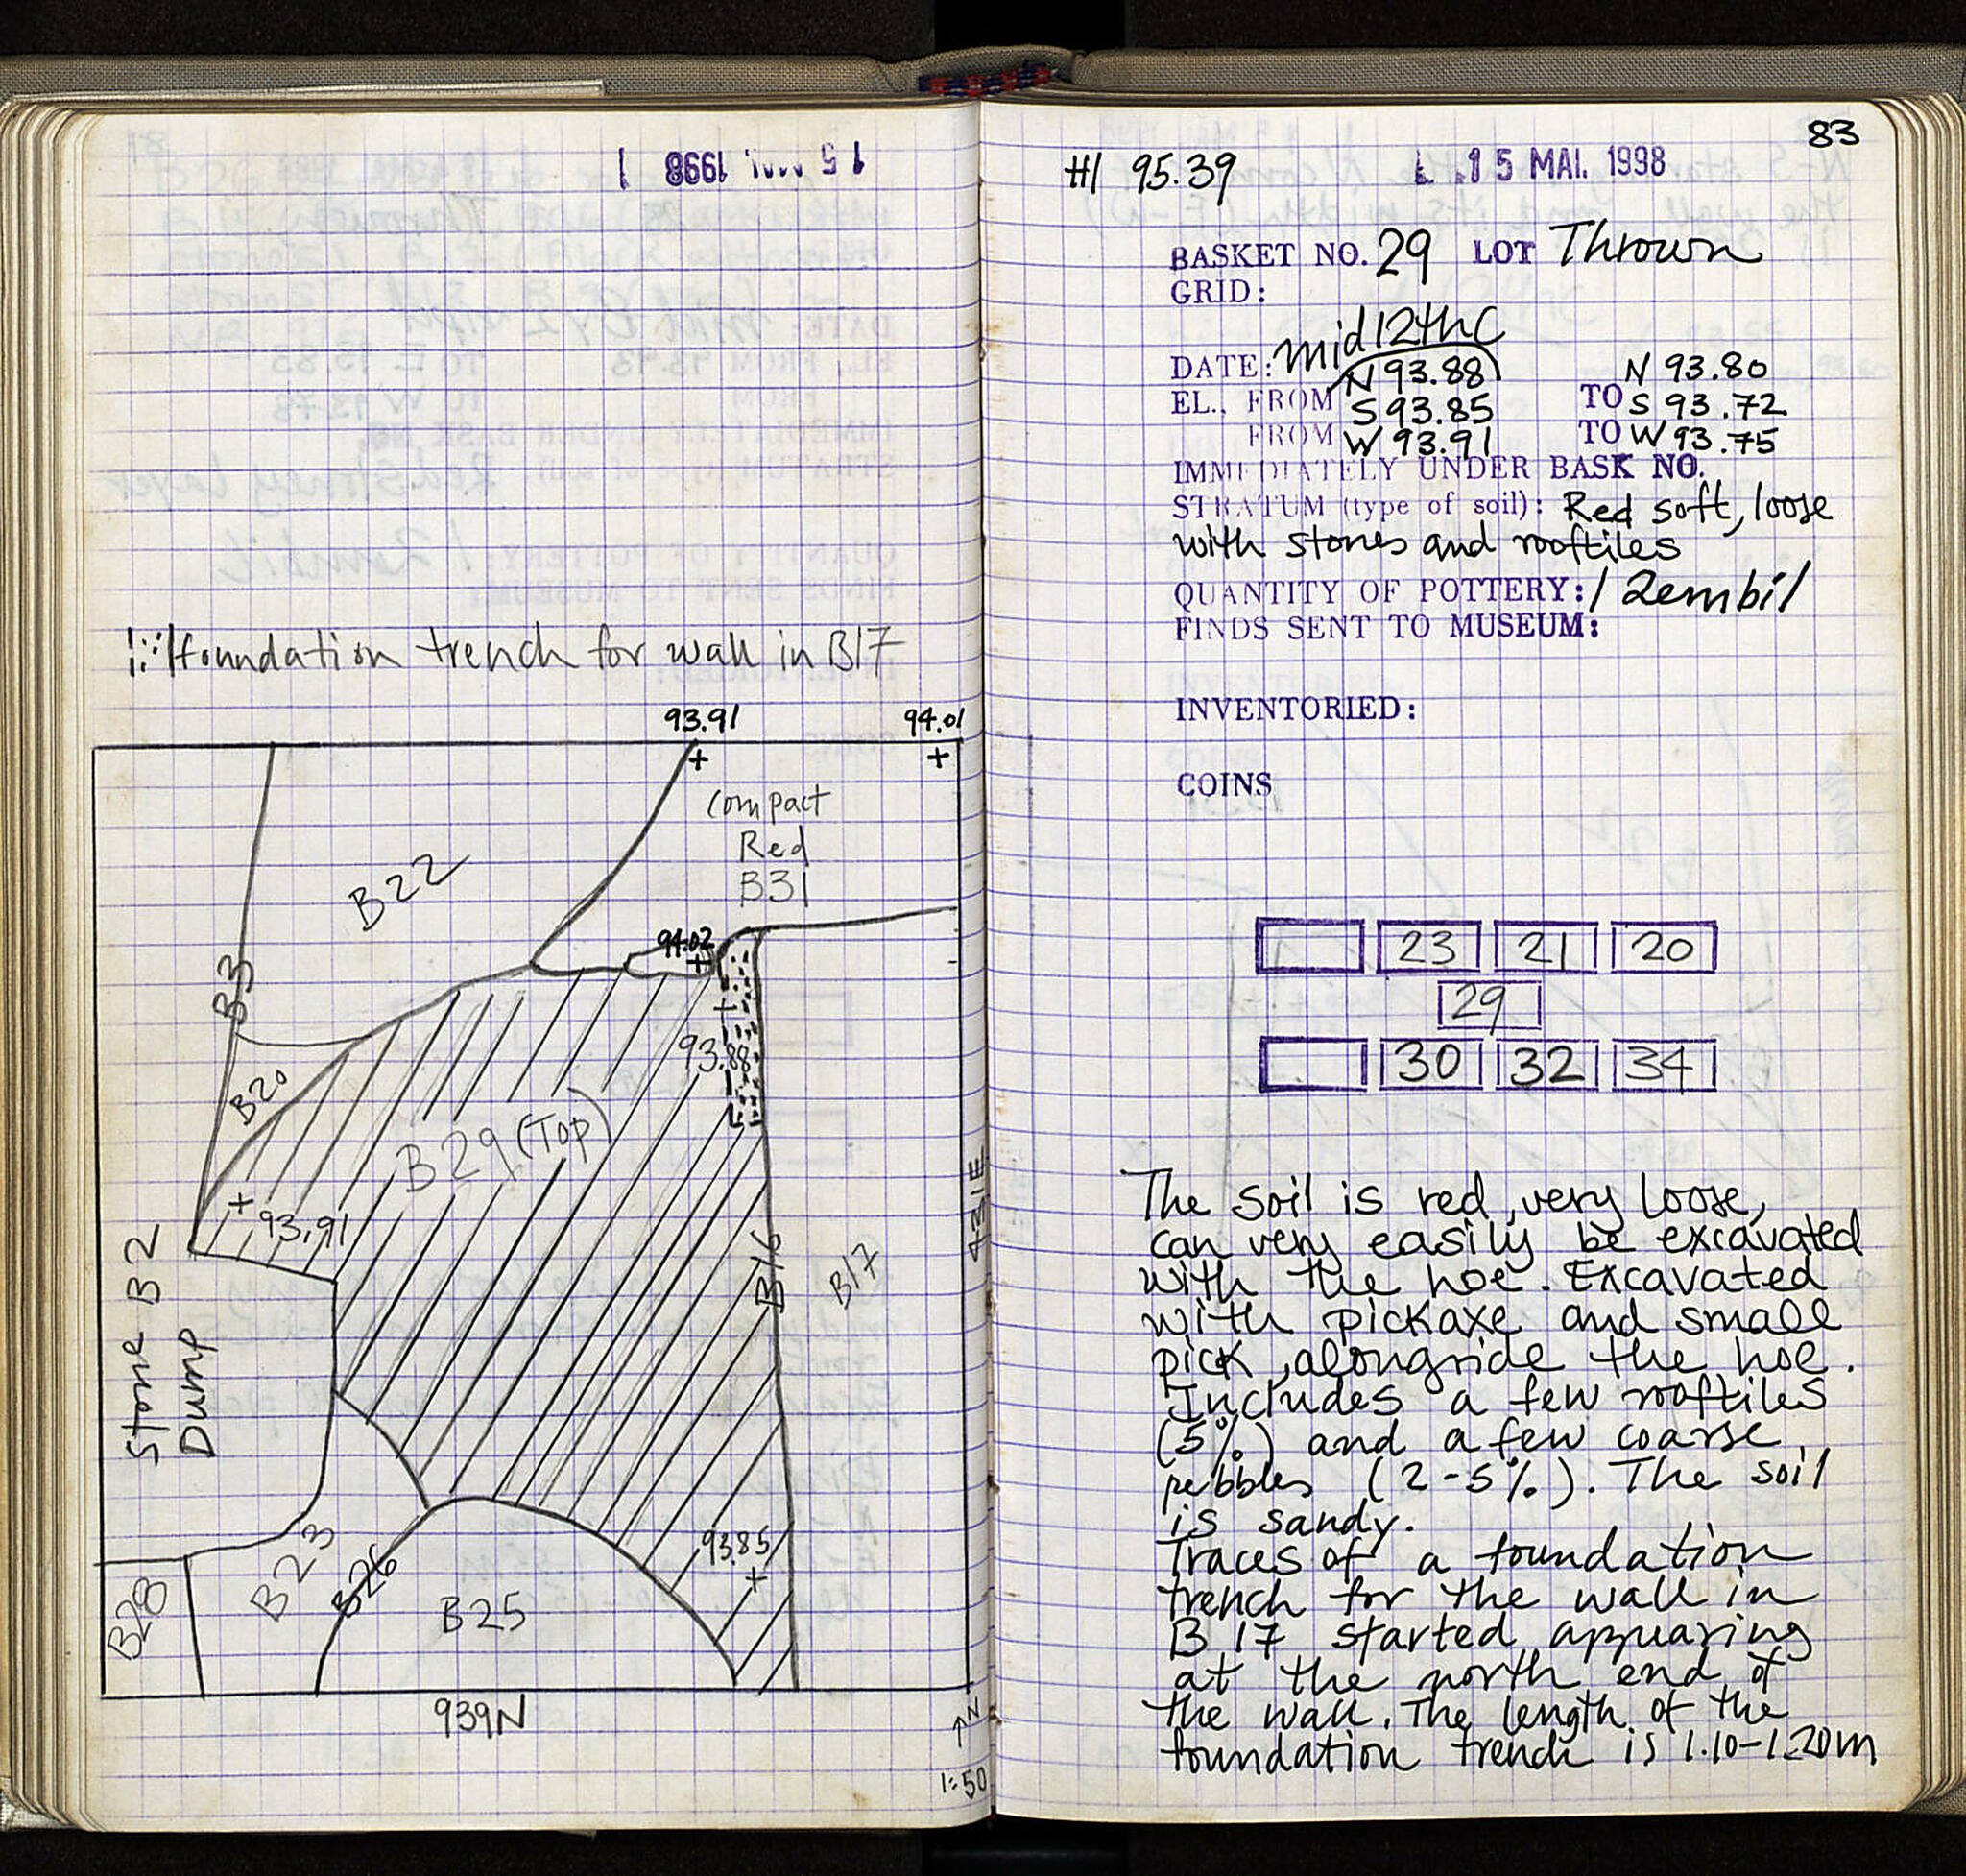 15 MAI. 1998
foundation trench for wall in B17
93.91
94.01
compact
Red
B31
B22
94.02
B3
93.88
B20
B29 (Top)
93.91
431E
B16
B17
Stone B2
Dump
93.85
B23
B26
B25
B28
939N
N
1:50
83
H1 95.39
15 MAI. 1998
BASKET NO. 29 LOT Thrown
GRID:
DATE: mid 12thC
N 93.88 N 93.80
EL., FROM S 93.85 TO S 93.72
FROM W 93.91 TO W 93.75
IMMEDIATELY UNDER BASK NO.
STRATUM (type of soil): Red soft, loose
with stones and rooftiles
QUANTITY OF POTTERY: 1 Zembil
FINDS SENT TO MUSEUM:
INVENTORIED:
COINS
23 21 20
29
30 32 34
The soil is red, very loose,
can very easily be excavated
with the hoe. Excavated
with pickaxe and small
pick, alongside the hoe.
Includes a few rooftiles
(5%) and a few coarse
pebbles (2-5%). The soil
is sandy.
Traces of a foundation
trench for the wall in
B 17 started appearing
at the north end of
the wall. The length of the
foundation trench is 1.10-1.20m